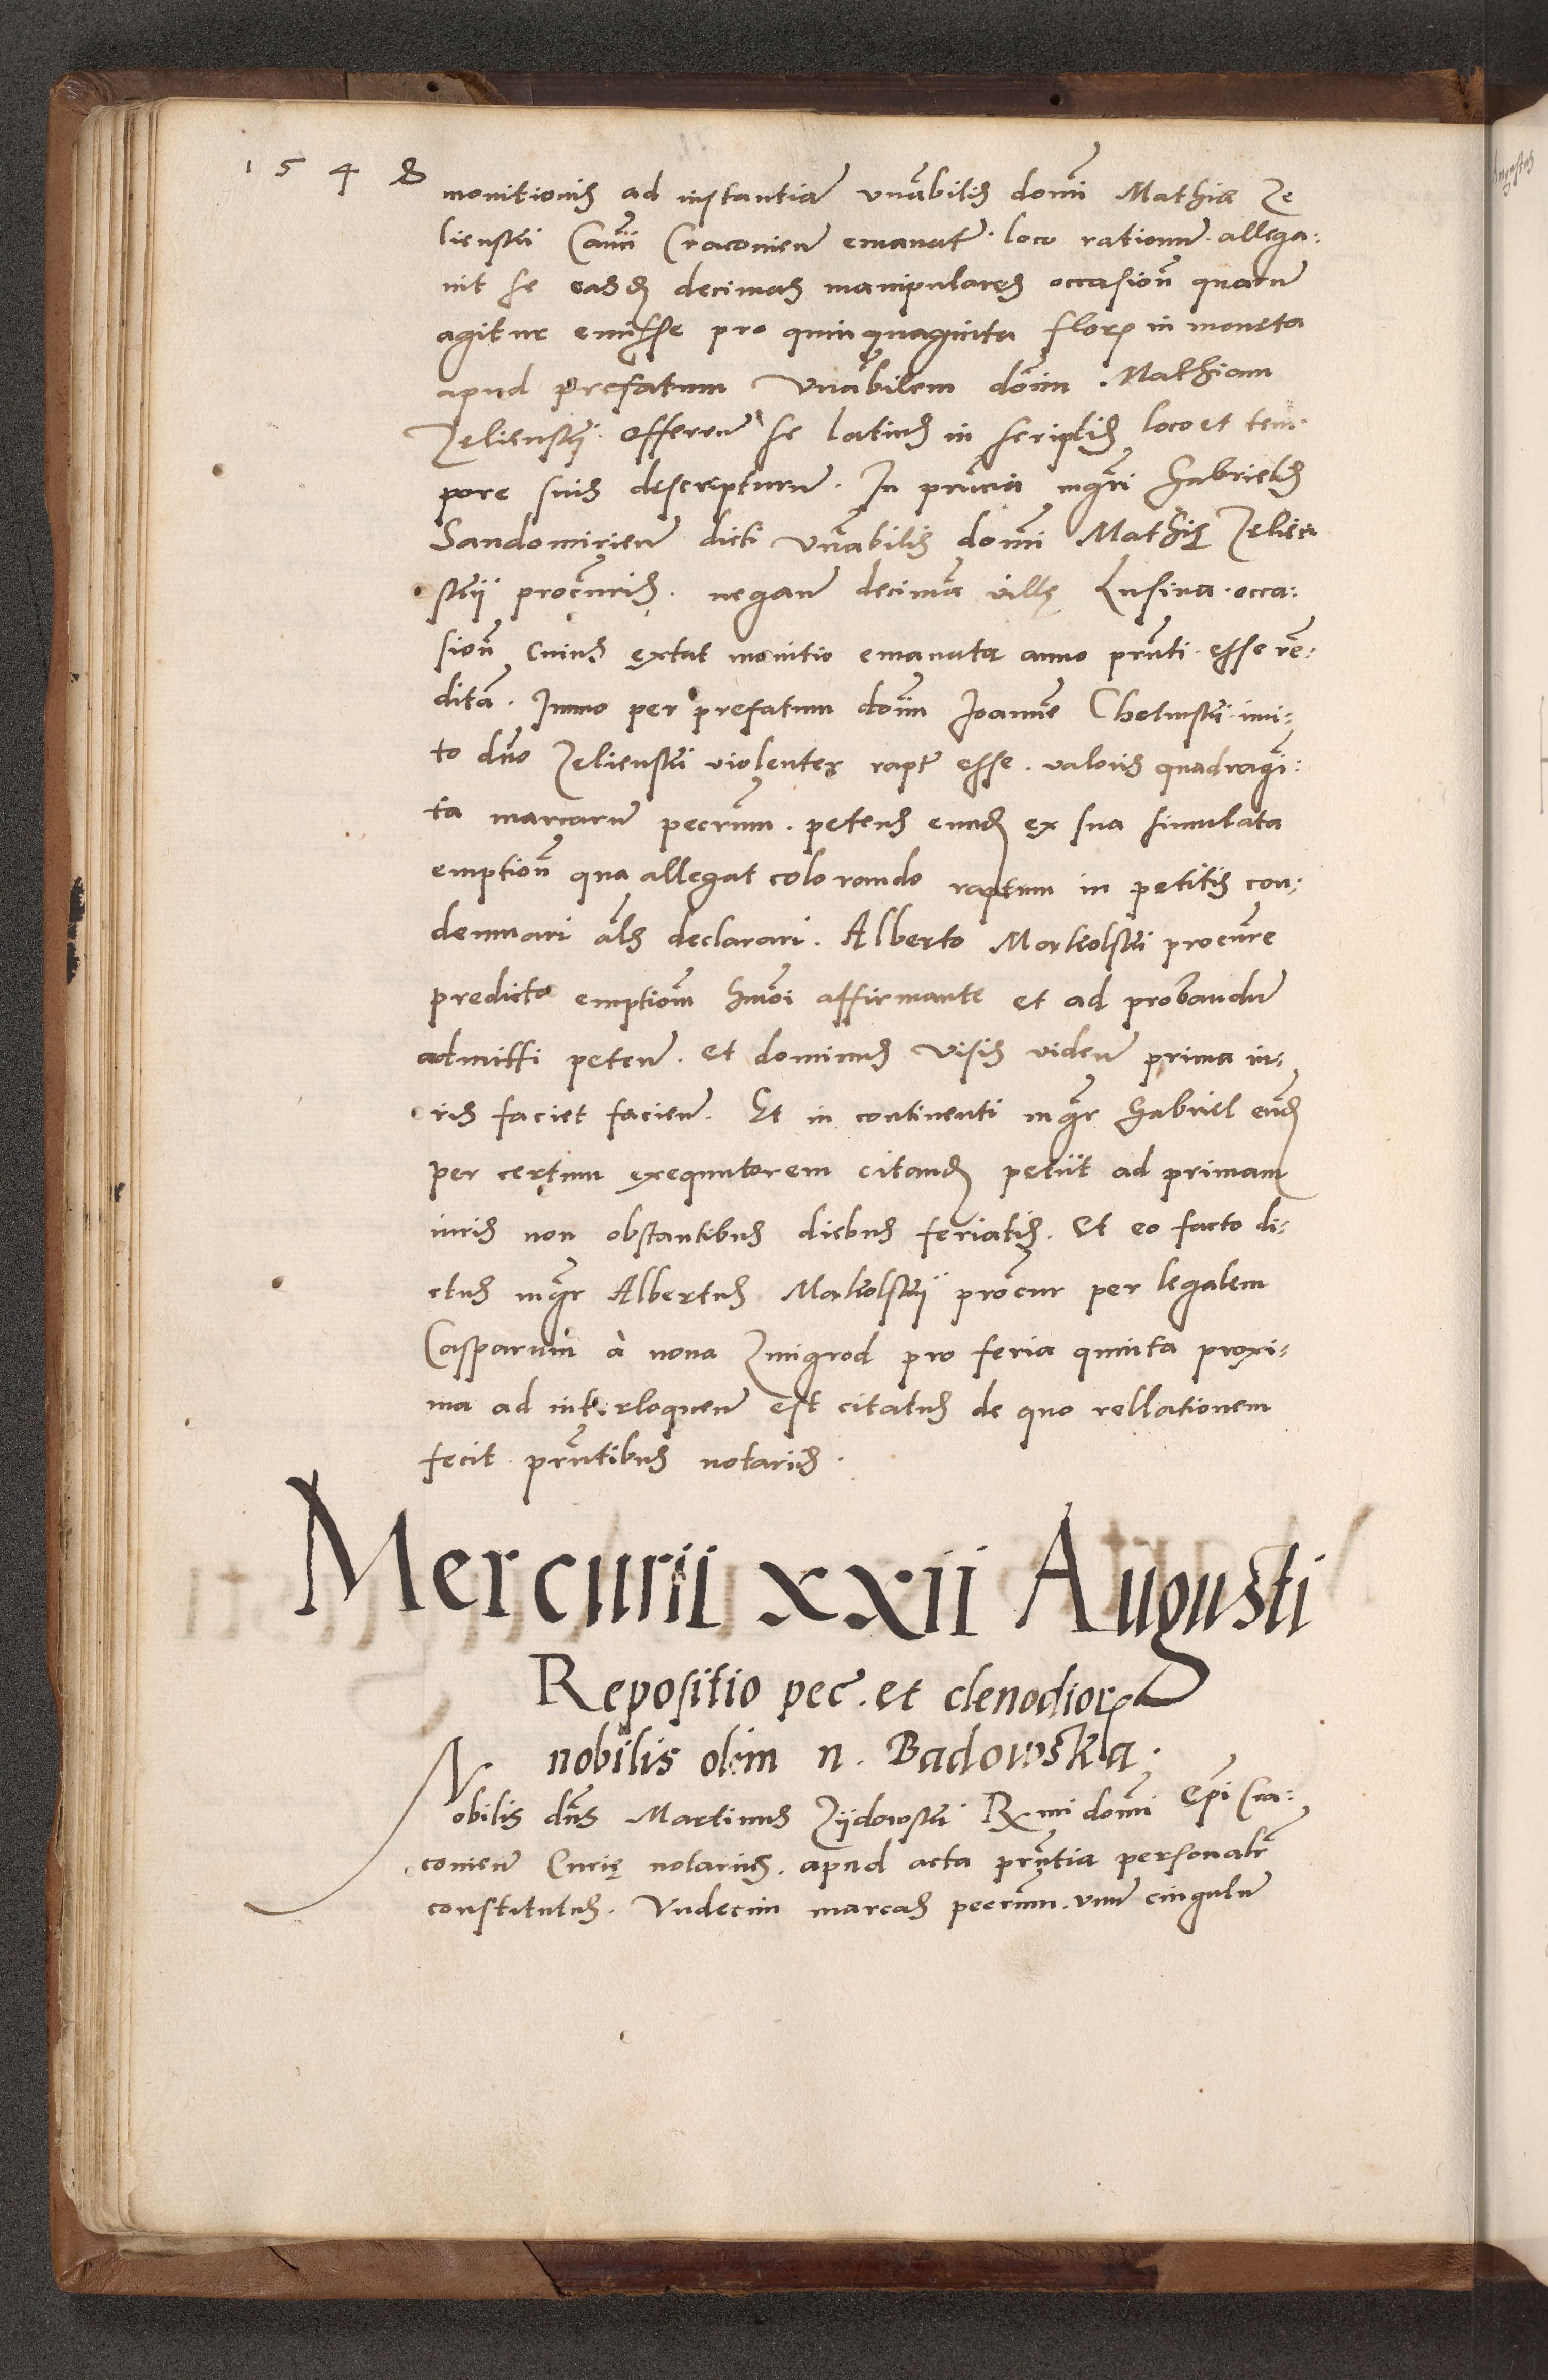 1 5 4 8
monitionis ad instantiam vn̄abilis domī Mathiæ Ze
liensky Canōi Cracovien̄ emanatæ loco rationum allega:
uit se easdem decimas manipulares occasioñ quarum
agitur emisse pro quinquaginta floren in moneta
apud prefatum Vn̄abilem doīm Mathiam
Zeliensky. Offerens se latius in scriptis loco et tem:
pore suis descripturum. In pn̄tia mgr̄i Gabrielis
Sandomirien̄ dicti Vn̄abilis domī Mathię Zelien
skii procūris. negan̄ decimā villę Lusina. occa:
sioñ cuius extat monitio emanata anno pn̄ti esse ven̄:
ditā. Immo per prefatum doīm Joannē Chelmski inui:
to dn̄o Zelienski violenter raptā esse. valoris quadragī:
ta marcarum pecun̄. petens eundem ex sua simulata
emptioñ qua allegat colorando raptum in petitis con:
demnari al̄s declarari. Alberto Markolski procūre
predicto emptioñ hmōi affirmante et ad probandum
admitti peten̄. Et dominus visis viden̄ prima iu:
ris faciet facien̄. Et in continenti mgr̄ Gabriel eundem
per certum exequutorem citandum petiit ad primam
iuris non obstantibus diebus feriatis. Et eo facto di:
ctus mgr̄ Albertus Markolskÿ procūr per legalem
Casparum à nona Zmigrod pro feria quinta proxi:
ma ad interloquen̄ est citatus de quo rellationem
fecit pn̄tibus notariis.
Mercurii xxii Augusti
Repositio pec̄. et clenodior
nobilis olim n. Badowska.
Nobilis dn̄s Martinus Zÿdowski Rx̄mi domī Ep̄i Cra:
covien̄ Curię notarius. apud acta pn̄tia personalr̄
constitutus. Vndecim marcas pecun̄. vnum cingulum